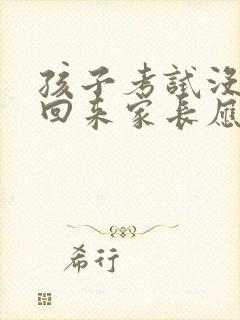 孩子考試沒
回來家長應
希行